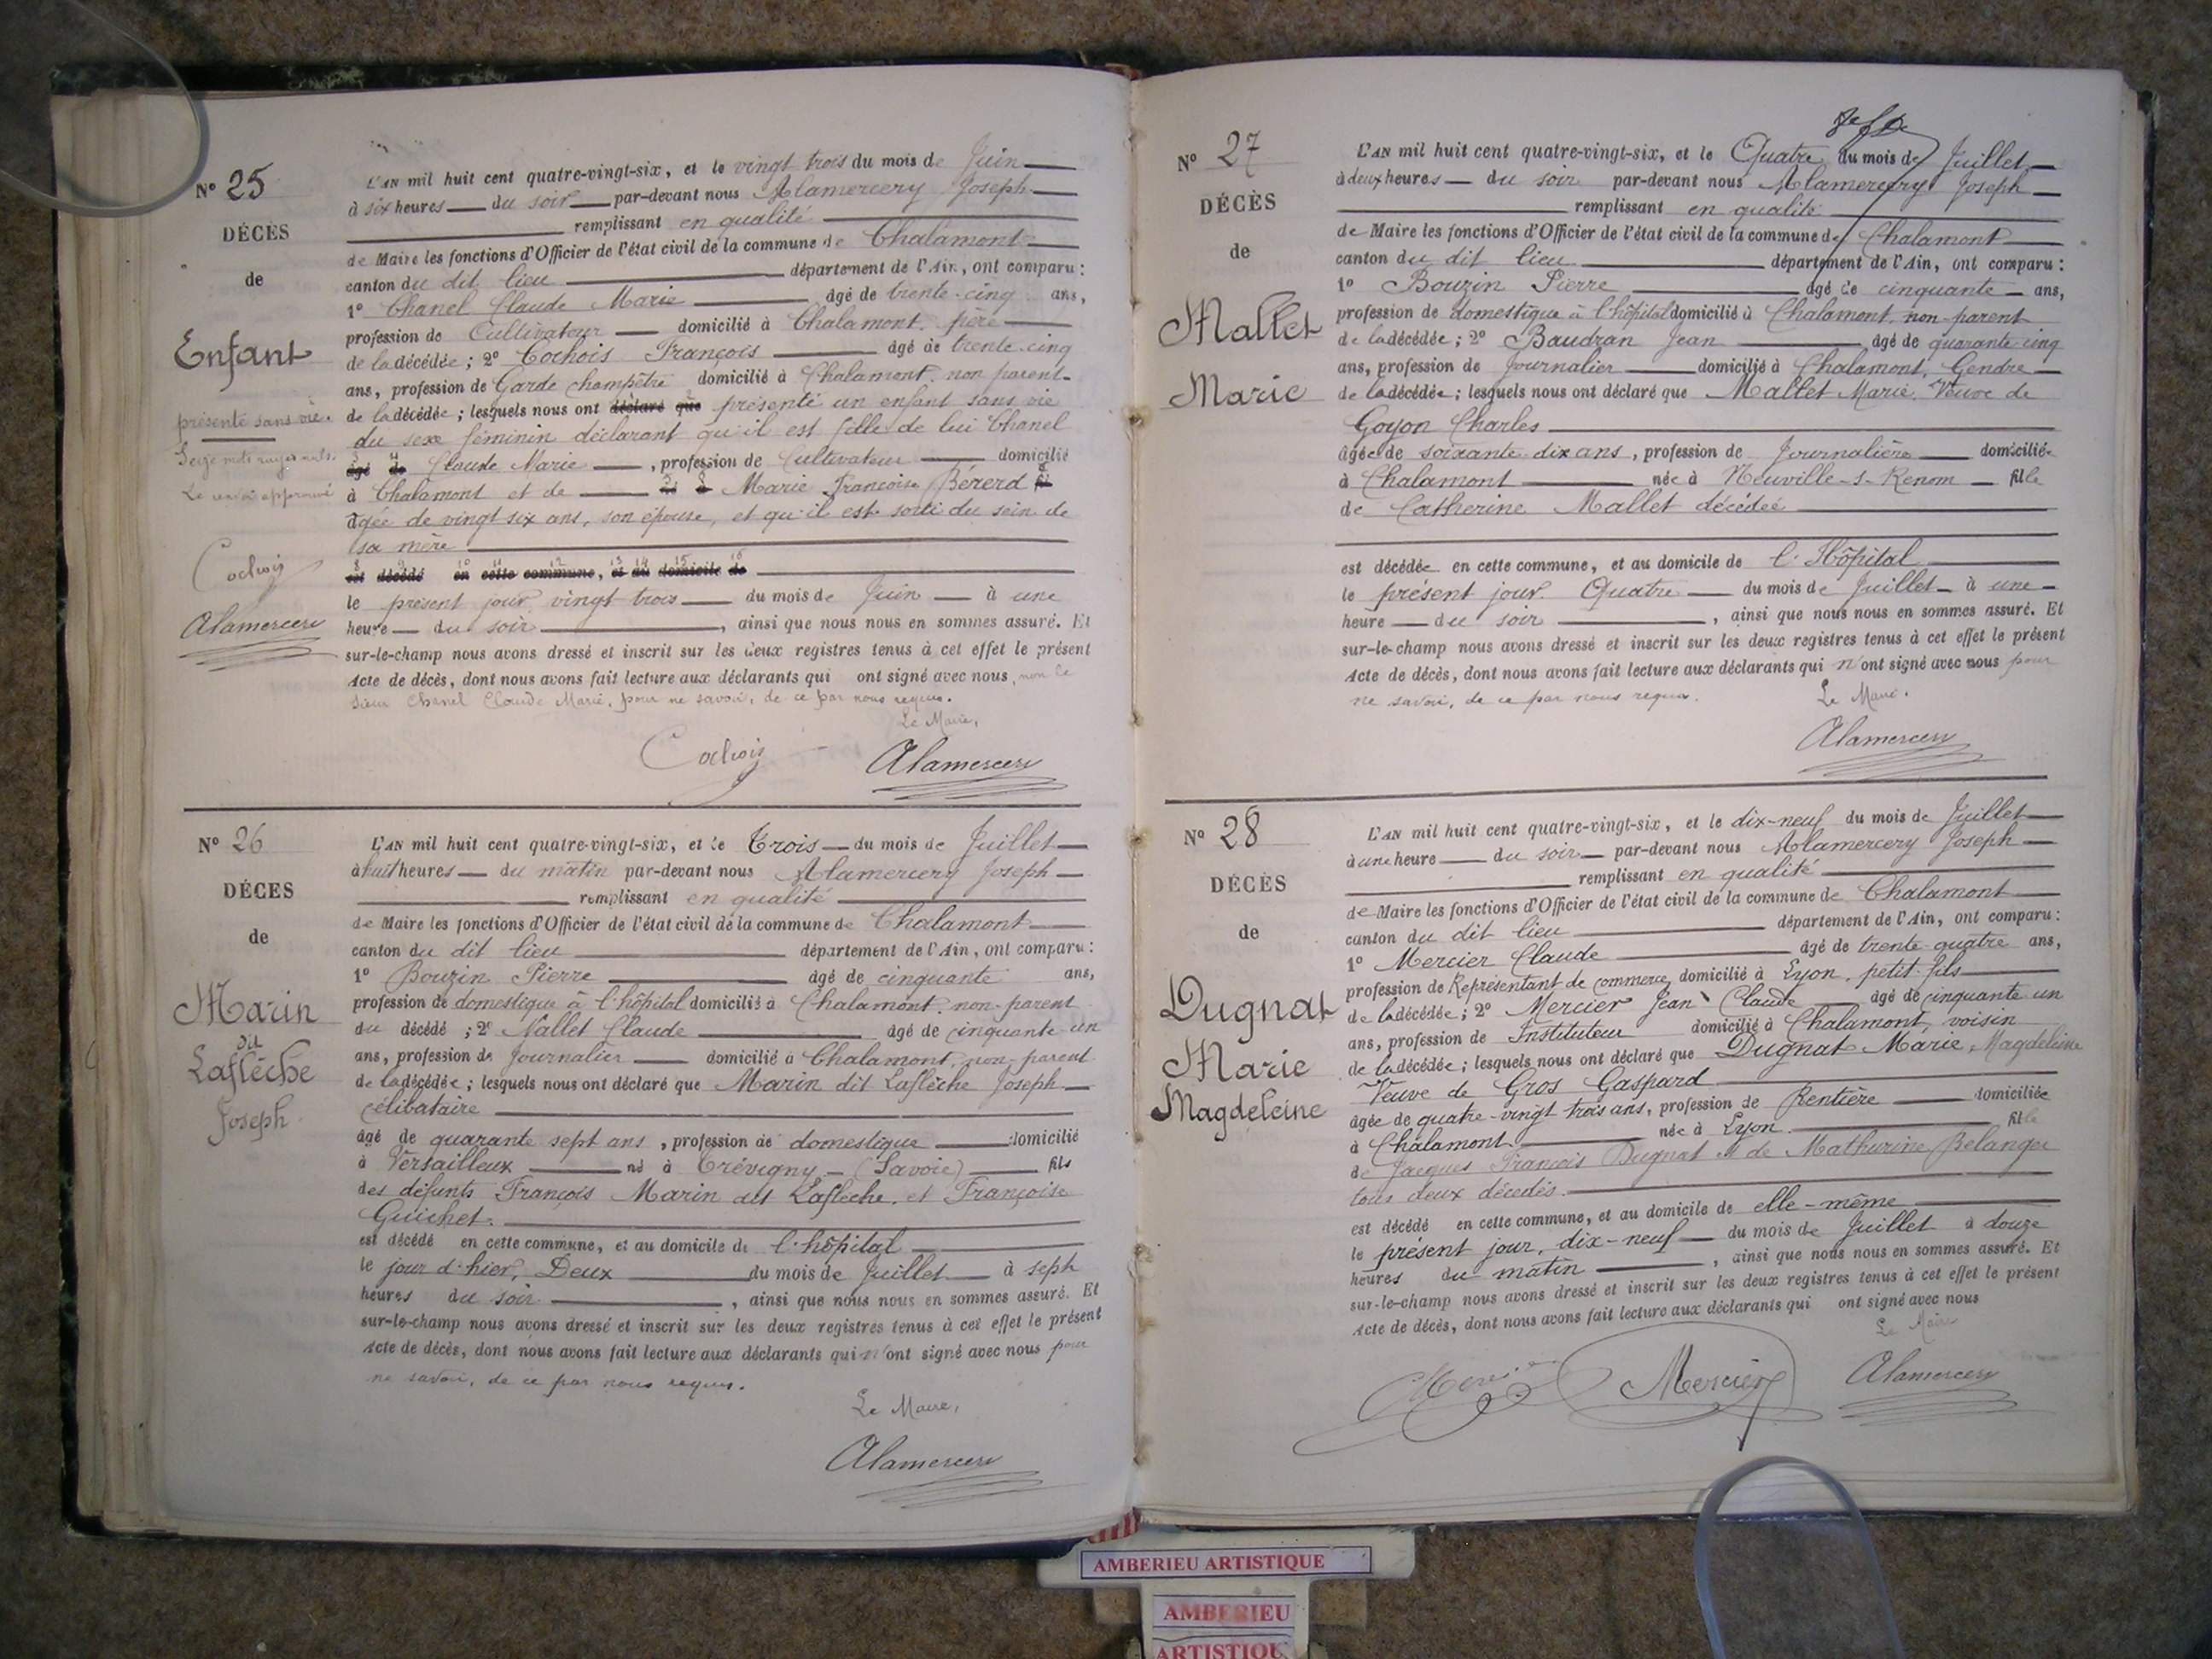 N° 25
DÉCÈS
de
Enfant
présenté sans vie.
Seize mots rayés nuls.
Le renvoi approuvé
Cochois
Alamercery
L'AN mil huit cent quatre-vingt-six, et le vingt trois du mois de Juin
à six heures du soir par-devant nous Alamercery Joseph
remplissant en qualité
de Maire les fonctions d'Officier de l'état civil de la commune de Chalamont
canton du dit lieu département de l'Ain, ont comparu :
1° Chanel Claude Marie âgé de trente-cinq ans,
profession de Cultivateur domicilié à Chalamont, père
de la décédée ; 2° Cochois François âgé de trente-cinq
ans, profession de Garde champêtre domicilié à Chalamont, non parent
de la décédée ; lesquels nous ont déclaré que présenté un enfant sans vie
du sexe féminin déclarant qu'il est fille de lui Chanel
âgé de Claude Marie , profession de Cultivateur domicilié
à Chalamont et de Marie Françoise Bérerd
âgée de vingt six ans, son épouse, et qu'il est sorti du sein de
sa mère
est décédé en cette commune, et au domicile de
le présent jour vingt trois du mois de Juin à une
heure du soir , ainsi que nous nous en sommes assuré. Et
sur-le-champ nous avons dressé et inscrit sur les deux registres tenus à cet effet le présent
Acte de décès, dont nous avons fait lecture aux déclarants qui ont signé avec nous, non le
sieur Chanel Claude Marie, pour ne savoir, de ce par nous requis.
Le Maire,
Cochois Alamercery
N° 26
DÉCES
de
Marin
dit
Laflèche
Joseph
L'AN mil huit cent quatre-vingt-six, et le Trois du mois de Juillet
à huit heures du matin par-devant nous Alamercery Joseph
remplissant en qualité
de Maire les fonctions d'Officier de l'état civil de la commune de Chalamont
canton du dit lieu département de l'Ain, ont comparu :
1° Bouzin Pierre âgé de cinquante ans,
profession de domestique à l'hôpital domicilié à Chalamont, non-parent
du décédé ; 2° Nallet Claude âgé de cinquante un
ans, profession de Journalier domicilié à Chalamont, non-parent
de la décédée ; lesquels nous ont déclaré que Marin dit Laflèche Joseph
célibataire
âgé de quarante sept ans , profession de domestique domicilié
à Versailleux né à Trévigny - (Savoie) fils
des défunts François Marin dit Laflèche et Françoise
Guichet.
est décédé en cette commune, et au domicile de l'hôpital
le jour d'hier, Deux du mois de Juillet à sept
heures du soir , ainsi que nous nous en sommes assuré. Et
sur-le-champ nous avons dressé et inscrit sur les deux registres tenus à cet effet le présent
Acte de décès, dont nous avons fait lecture aux déclarants qui n'ont signé avec nous pour
ne savoir, de ce par nous requis.
Le Maire,
Alamercery
N° 27
DÉCÈS
de
Mallet
Marie
L'AN mil huit cent quatre-vingt-six, et le Quatre du mois de Juillet
à deux heures du soir par-devant nous Alamercery Joseph
remplissant en qualité
de Maire les fonctions d'Officier de l'état civil de la commune de Chalamont
canton du dit lieu département de l'Ain, ont comparu :
1° Bouzin Pierre âgé de cinquante ans,
profession de domestique à l'hôpital domicilié à Chalamont non-parent
de la décédée ; 2° Baudran Jean âgé de quarante-cinq
ans, profession de Journalier domicilié à Chalamont, Gendre
de la décédée ; lesquels nous ont déclaré que Mallet Marie, Veuve de
Goyon Charles
âgée de soixante-dix ans , profession de Journalière domiciliée
à Chalamont née à Neuville-s-Renom fille
de Catherine Mallet décédée
est décédée en cette commune, et au domicile de l'Hôpital
le présent jour. Quatre du mois de Juillet à une
heure du soir , ainsi que nous nous en sommes assuré. Et
sur-le-champ nous avons dressé et inscrit sur les deux registres tenus à cet effet le présent
Acte de décès, dont nous avons fait lecture aux déclarants qui n'ont signé avec nous pour
ne savoir, de ce par nous requis.
Le Maire.
Alamercery
N° 28
DÉCÈS
de
Dugnat
Marie
Magdeleine
L'AN mil huit cent quatre-vingt-six, et le dix-neuf du mois de Juillet
à une heure du soir par-devant nous Alamercery Joseph
remplissant en qualité
de Maire les fonctions d'Officier de l'état civil de la commune de Chalamont
canton du dit lieu département de l'Ain, ont comparu :
1° Mercier Claude âgé de trente-quatre ans,
profession de Représentant de commerce domicilié à Lyon, petit-fils
de la décédée ; 2° Mercier Jean Claude âgé de cinquante un
ans, profession de Instituteur domicilié à Chalamont, voisin
de la décédée ; lesquels nous ont déclaré que Dugnat Marie Magdeleine
Veuve de Gros Gaspard
âgée de quatre-vingt trois ans, profession de Rentière domiciliée
à Chalamont née à Lyon fille
de Jacques François Dugnat et de Mathurine Belanger
tous deux décédés.
est décédé en cette commune, et au domicile de elle-même
le présent jour, dix-neuf du mois de Juillet à douze
heures du matin , ainsi que nous nous en sommes assuré. Et
sur-le-champ nous avons dressé et inscrit sur les deux registres tenus à cet effet le présent
Acte de décès, dont nous avons fait lecture aux déclarants qui ont signé avec nous
Le Maire
Mercier Alamercery
AMBERIEU ARTISTIQUE
AMBERIEU
ARTISTIQU